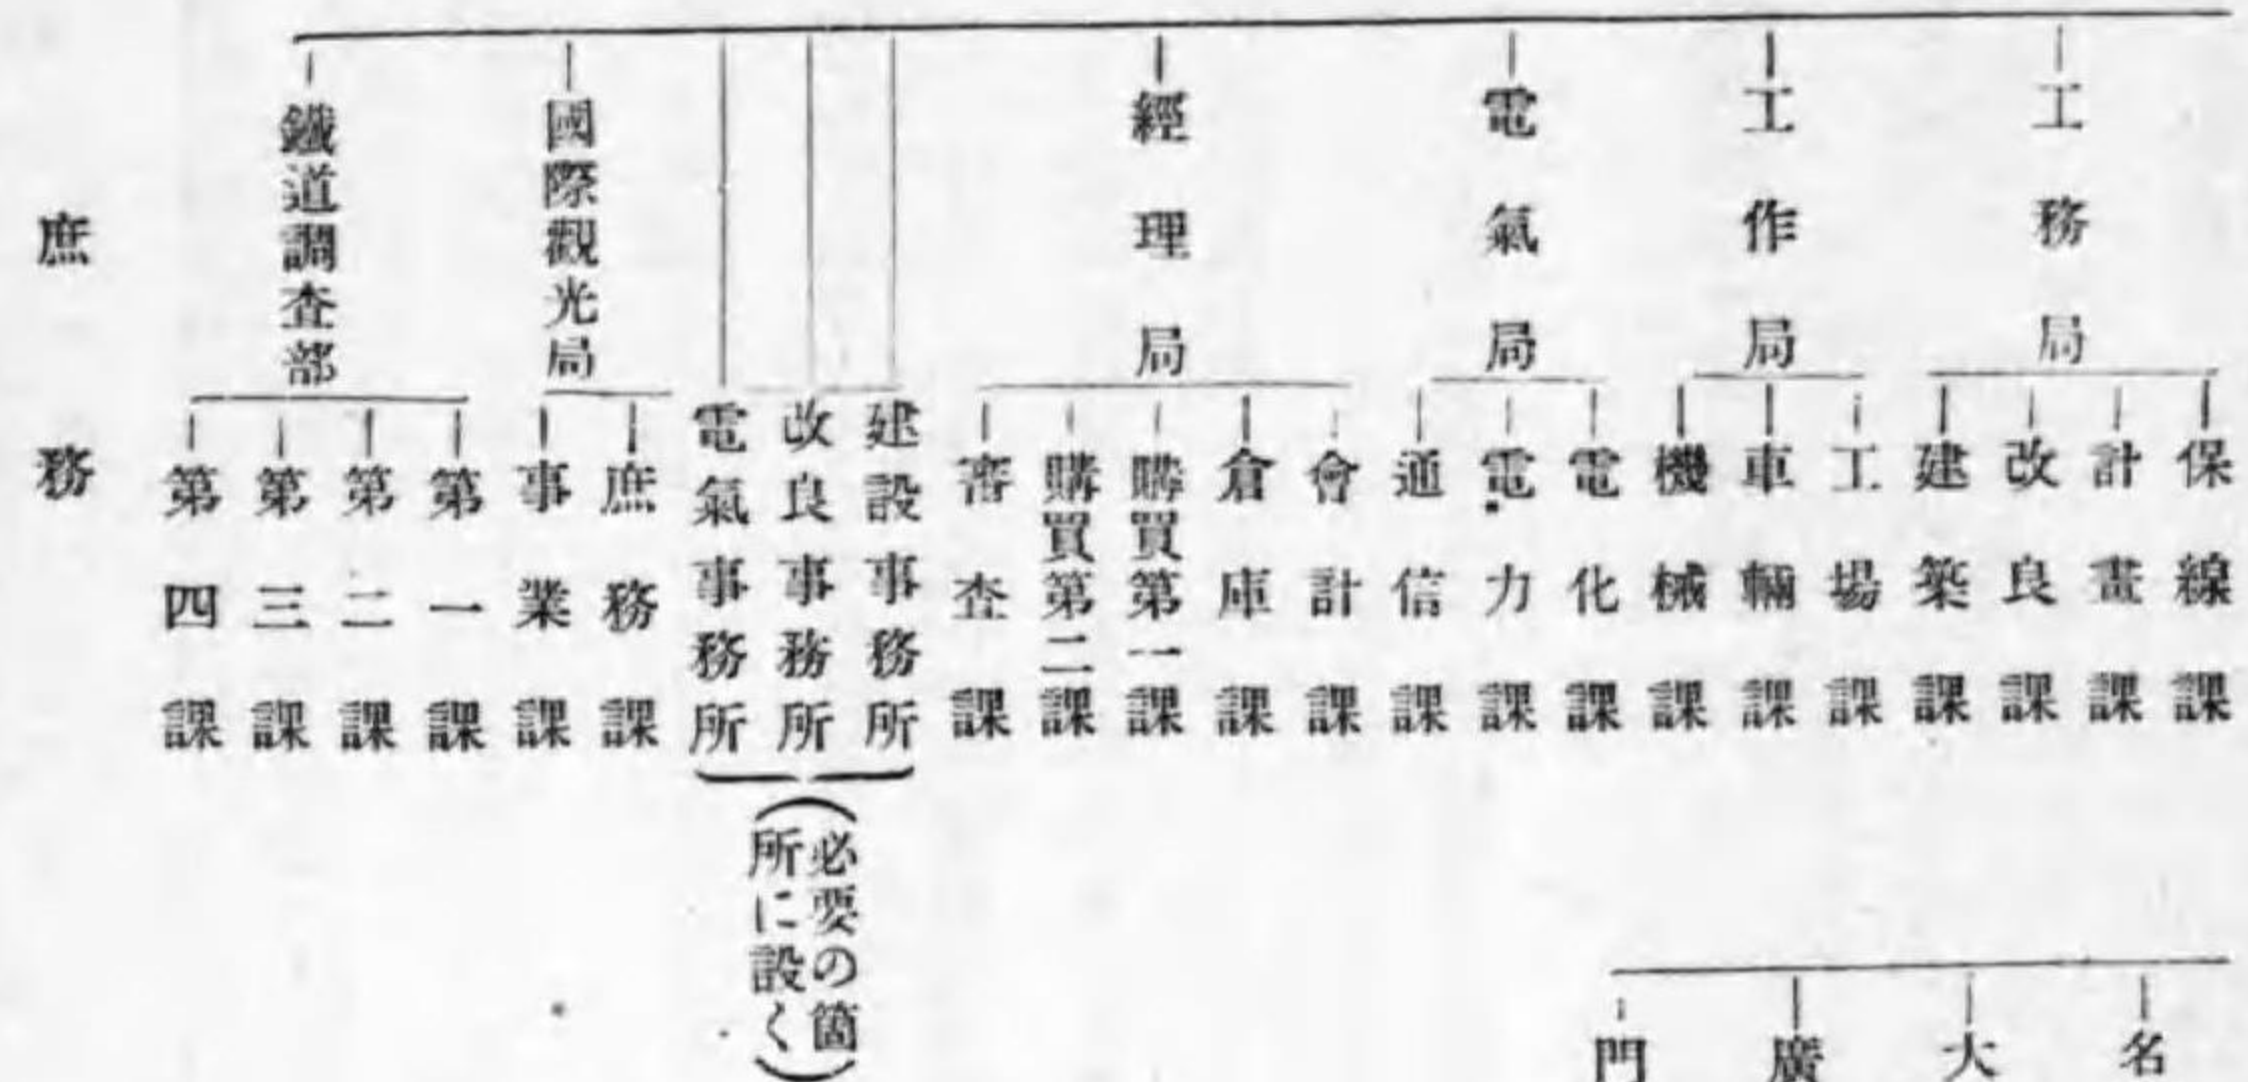 工務局
保線課
計畫課
改良課
建築課
工作局
工場課
車輛課
機械課
電氣局
電化課
電力課
通信課
經理局
會計課
倉庫課
購買第一課
購買第二課
審査課
建設事務所
改良事務所
電氣事務所
(必要の箇
所に設く)
國際觀光局
庶務課
事業課
鐵道調査部
第一課
第二課
第三課
第四課
名
大
廣
門
庶務